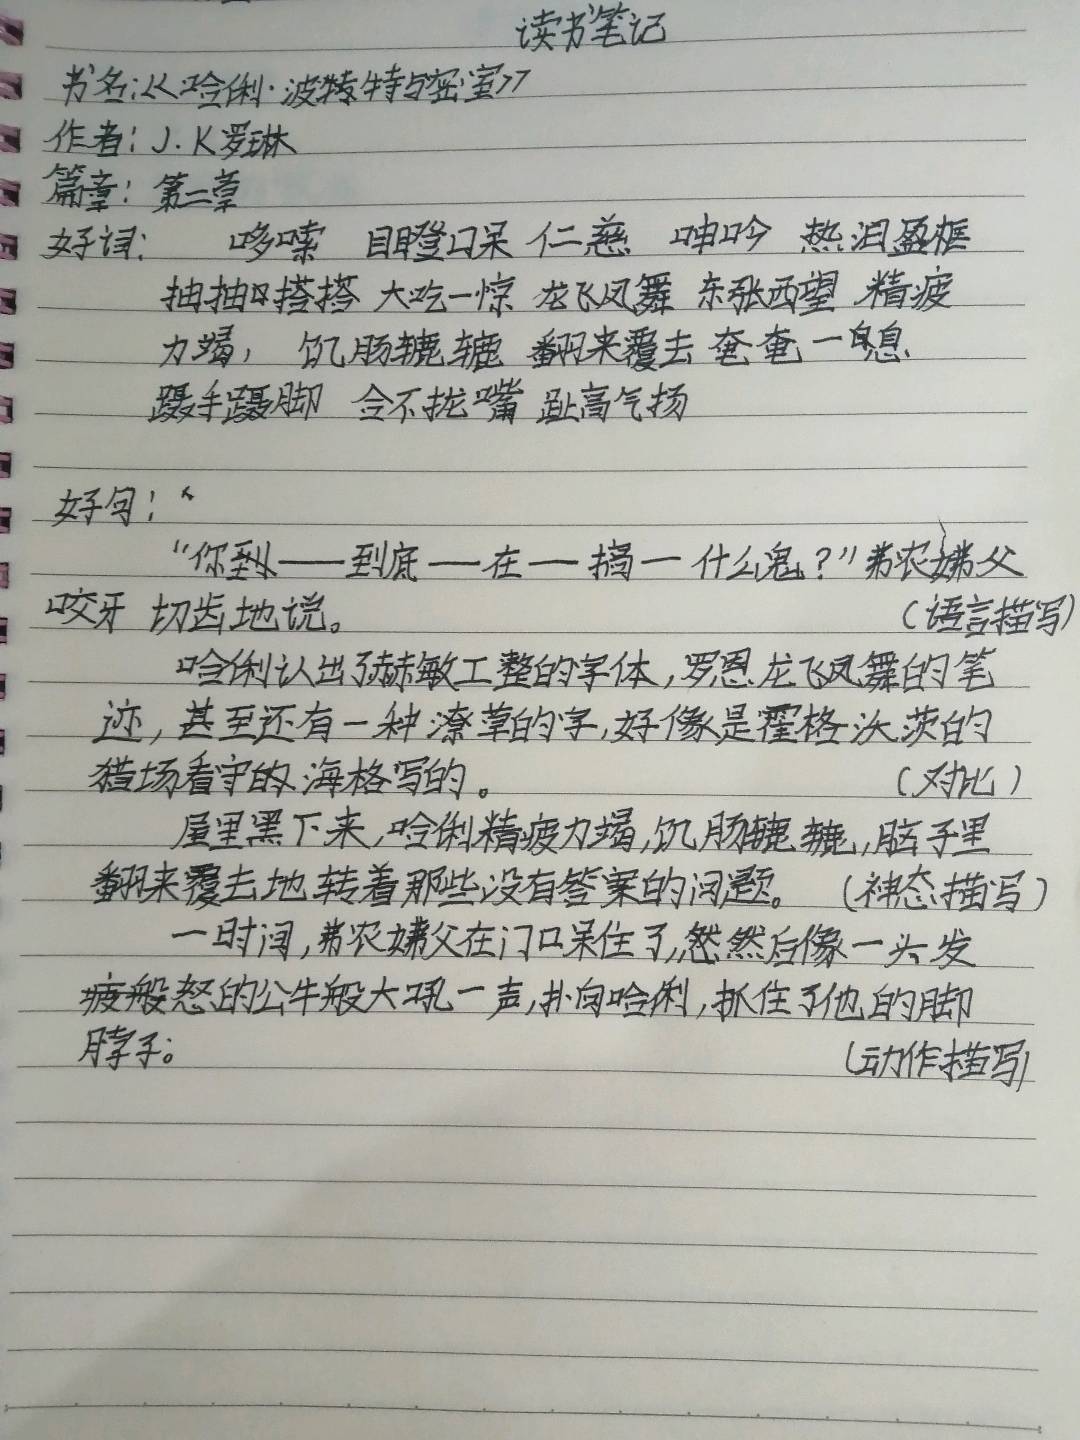 读书笔记
书名:<<哈俐·波特与密室>>
作者:J.K罗琳
篇章:第二章
好词: 哆嗦 目瞪口呆 仁慈 呻吟 热泪盈框
抽抽搭搭 大吃一惊 龙飞凤舞 东张西望 精疲
力竭, 饥肠辘辘 翻来覆去 奄奄一息
蹑手蹑脚 合不拢嘴 趾高气扬
好句:“
“你到——到底—在—搞—什么鬼?”弗农姨父
咬牙切齿地说。 (语言描写)
哈俐认出了赫敏工整的字体,罗恩龙飞凤舞的笔
迹,甚至还有一种潦草的字,好像是霍格沃茨的
猎场看守的海格写的。 (对比)
屋里黑下来,哈俐精疲力竭,饥肠辘辘,脑子里
翻来覆去地转着那些没有答案的问题。 (神态描写)
一时间,弗农姨父在门口呆住了,然后像一头发
怒的公牛般大吼一声,扑向哈俐,抓住了他的脚
脖子。 (动作描写)